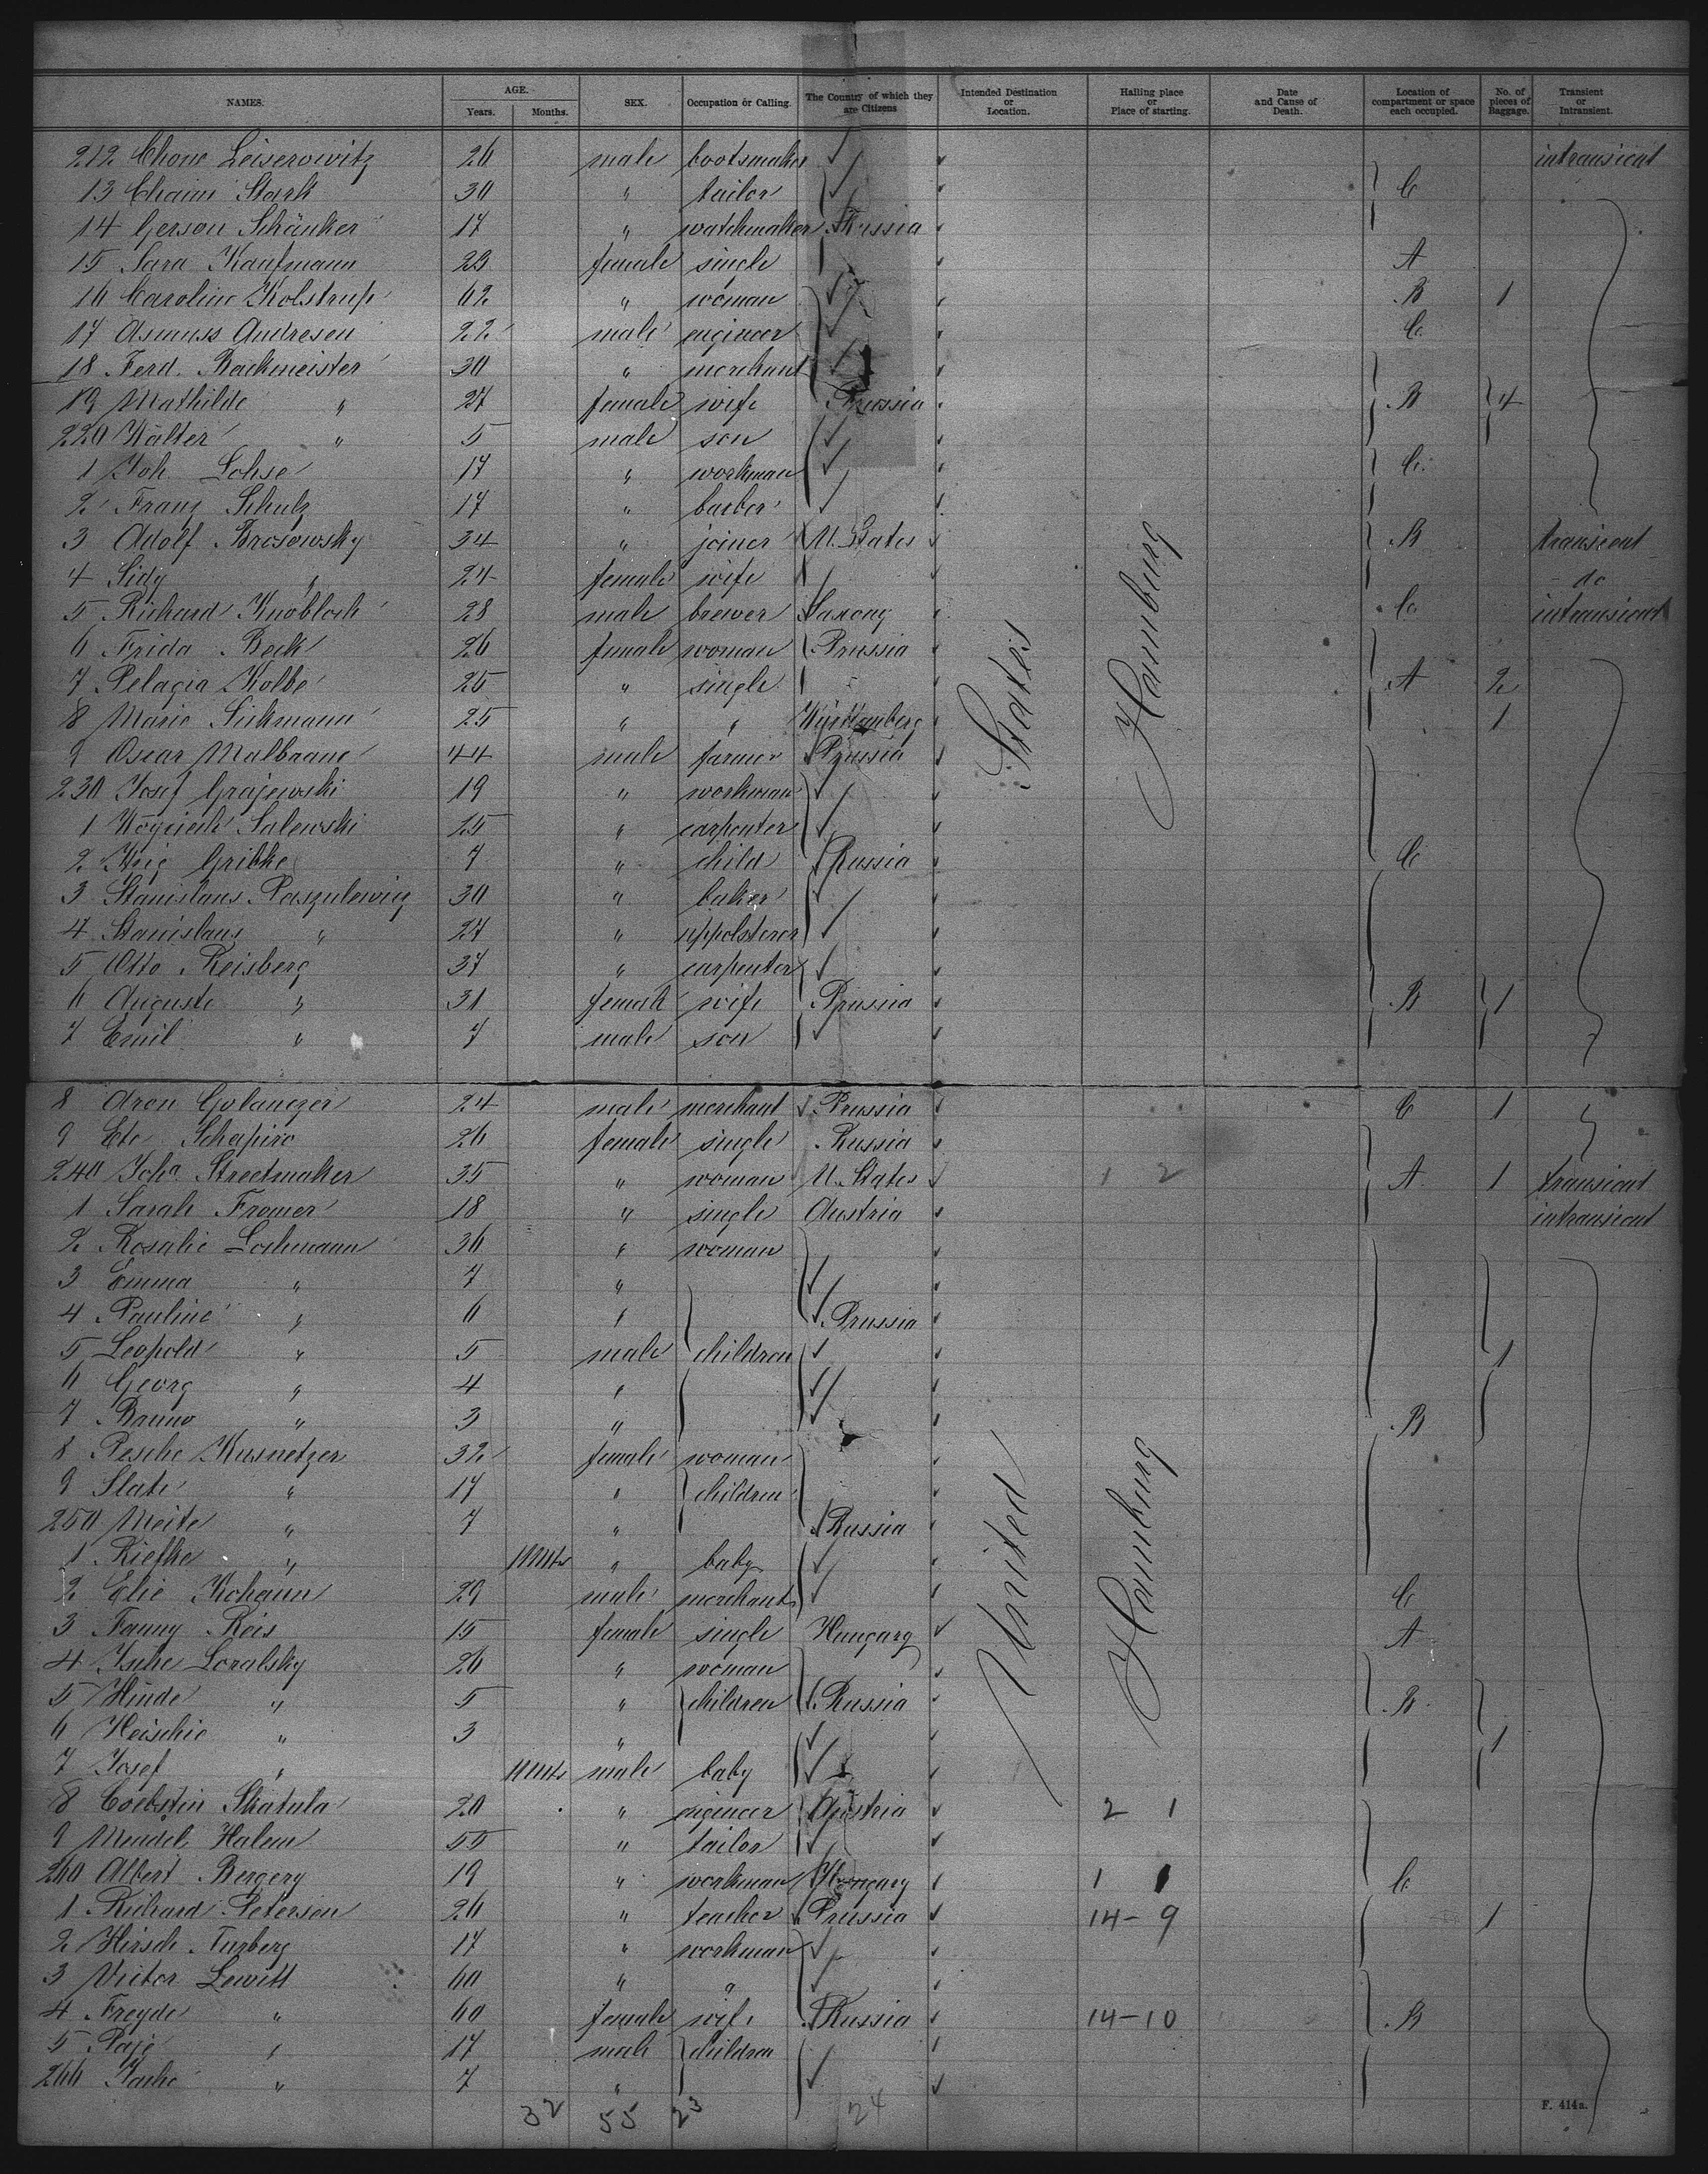 NAMES. AGE. Years. Months. SEX. Occupation or Calling. The Country of which they are Citizens Intended Destination or Location. Hailing place or Place of starting. Date and Cause of Death. Location of compartment or space each occupied. No. of pieces of Baggage. Transient or Intransient.
212 Chone Leiserowitz 26 male bootsmaker intransient
13 Chaim Stark 30 " tailor C
14 Gerson Schänker 17 " watchmaker Russia
15 Sara Kaufmann 23 female single A
16 Caroline Kolstrup 62 " woman B 1
17 Asmuss Andresen 22 male engineer C
18 Ferd. Backmeister 30 " merchant
19 Mathilde " 27 female wife Prussia B 4
220 Walter " 5 male son
1 Joh. Lohse 17 " workman C
2 Franz Schulz 17 " barber
3 Adolf Brosowsky 34 " joiner U. States B transient
4 Sidy " 24 female wife do
5 Richard Knobloch 28 male brewer Saxony C intransient
6 Frida Beck 26 female woman Prussia
7 Pelagia Kolbe 25 " single A 2
8 Marie Siekmann 25 " " Württemberg 1
9 Oscar Malbranc 44 male farmer Prussia
230 Josef Grajewski 19 " workman
1 Woyciech Salewski 25 " carpenter
2 Woig Gribke 7 " child Russia C
3 Stanislaus Paszulewicz 30 " baker
4 Stanislaus " 27 " uppolsterer
5 Otto Reisberg 37 " carpenter
6 Auguste " 31 female wife Prussia B 1
7 Emil " 7 male son
8 Aron Golanczer 24 male merchant Prussia C 1
9 Ete Schapiro 26 female single Russia
240 Joha. Streetmaker 35 " woman U. States 1 2 A 1 transient
1 Sarah Fromer 18 " single Austria intransient
2 Rosalie Lochmann 36 " woman
3 Emma " 7 "
4 Pauline " 6 " Prussia
5 Leopold " 5 male children 1
6 Georg " 4 "
7 Bruno " 3 " B
8 Pesche Kusnetzer 32 female woman
9 Slate " 17 " children
250 Meite " 7 " Russia
1 Riefke " 11 Mts " baby
2 Elie Kohann 29 male merchant C
3 Fanny Reis 15 female single Hungary A
4 Jsche Loralsky 26 " woman
5 Hinde " 5 " children Russia B
6 Heischie " 3 " 1
7 Josef " 11 Mts male baby
8 Coelestin Skatula 20 " engineer Austria 2 1
9 Mendel Halem 55 " tailor
260 Albert Bergery 19 " workman Hungary 1 1 C
1 Richard Peterson 26 " teacher Prussia 14-9 1
2 Hirsch Turberg 17 " workman
3 Victor Lewitt 60 " "
4 Freyde " 60 female wife Russia 14-10 B
5 Paje " 17 male children
266 Jache " 7 "
United States
Hamburg
Hamburg
32 55 23 24
F. 414a.